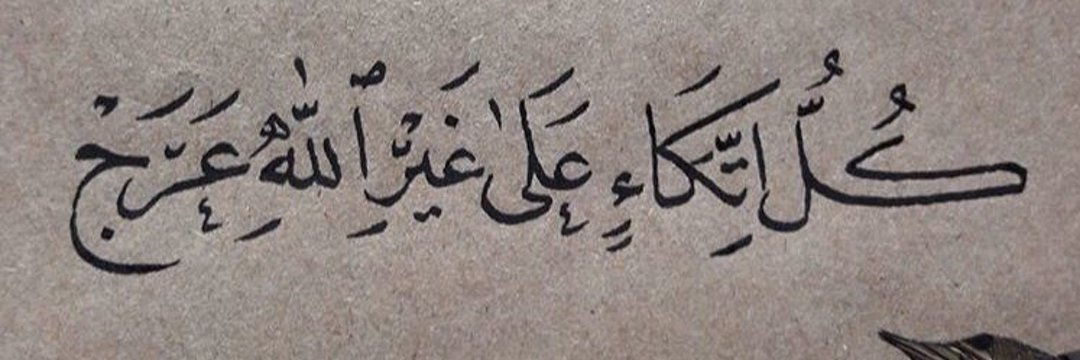 كُلُّ اِتِّكَاءٍ عَلَىٰ غَيْرِ ٱللّٰهِ عَرَجْ